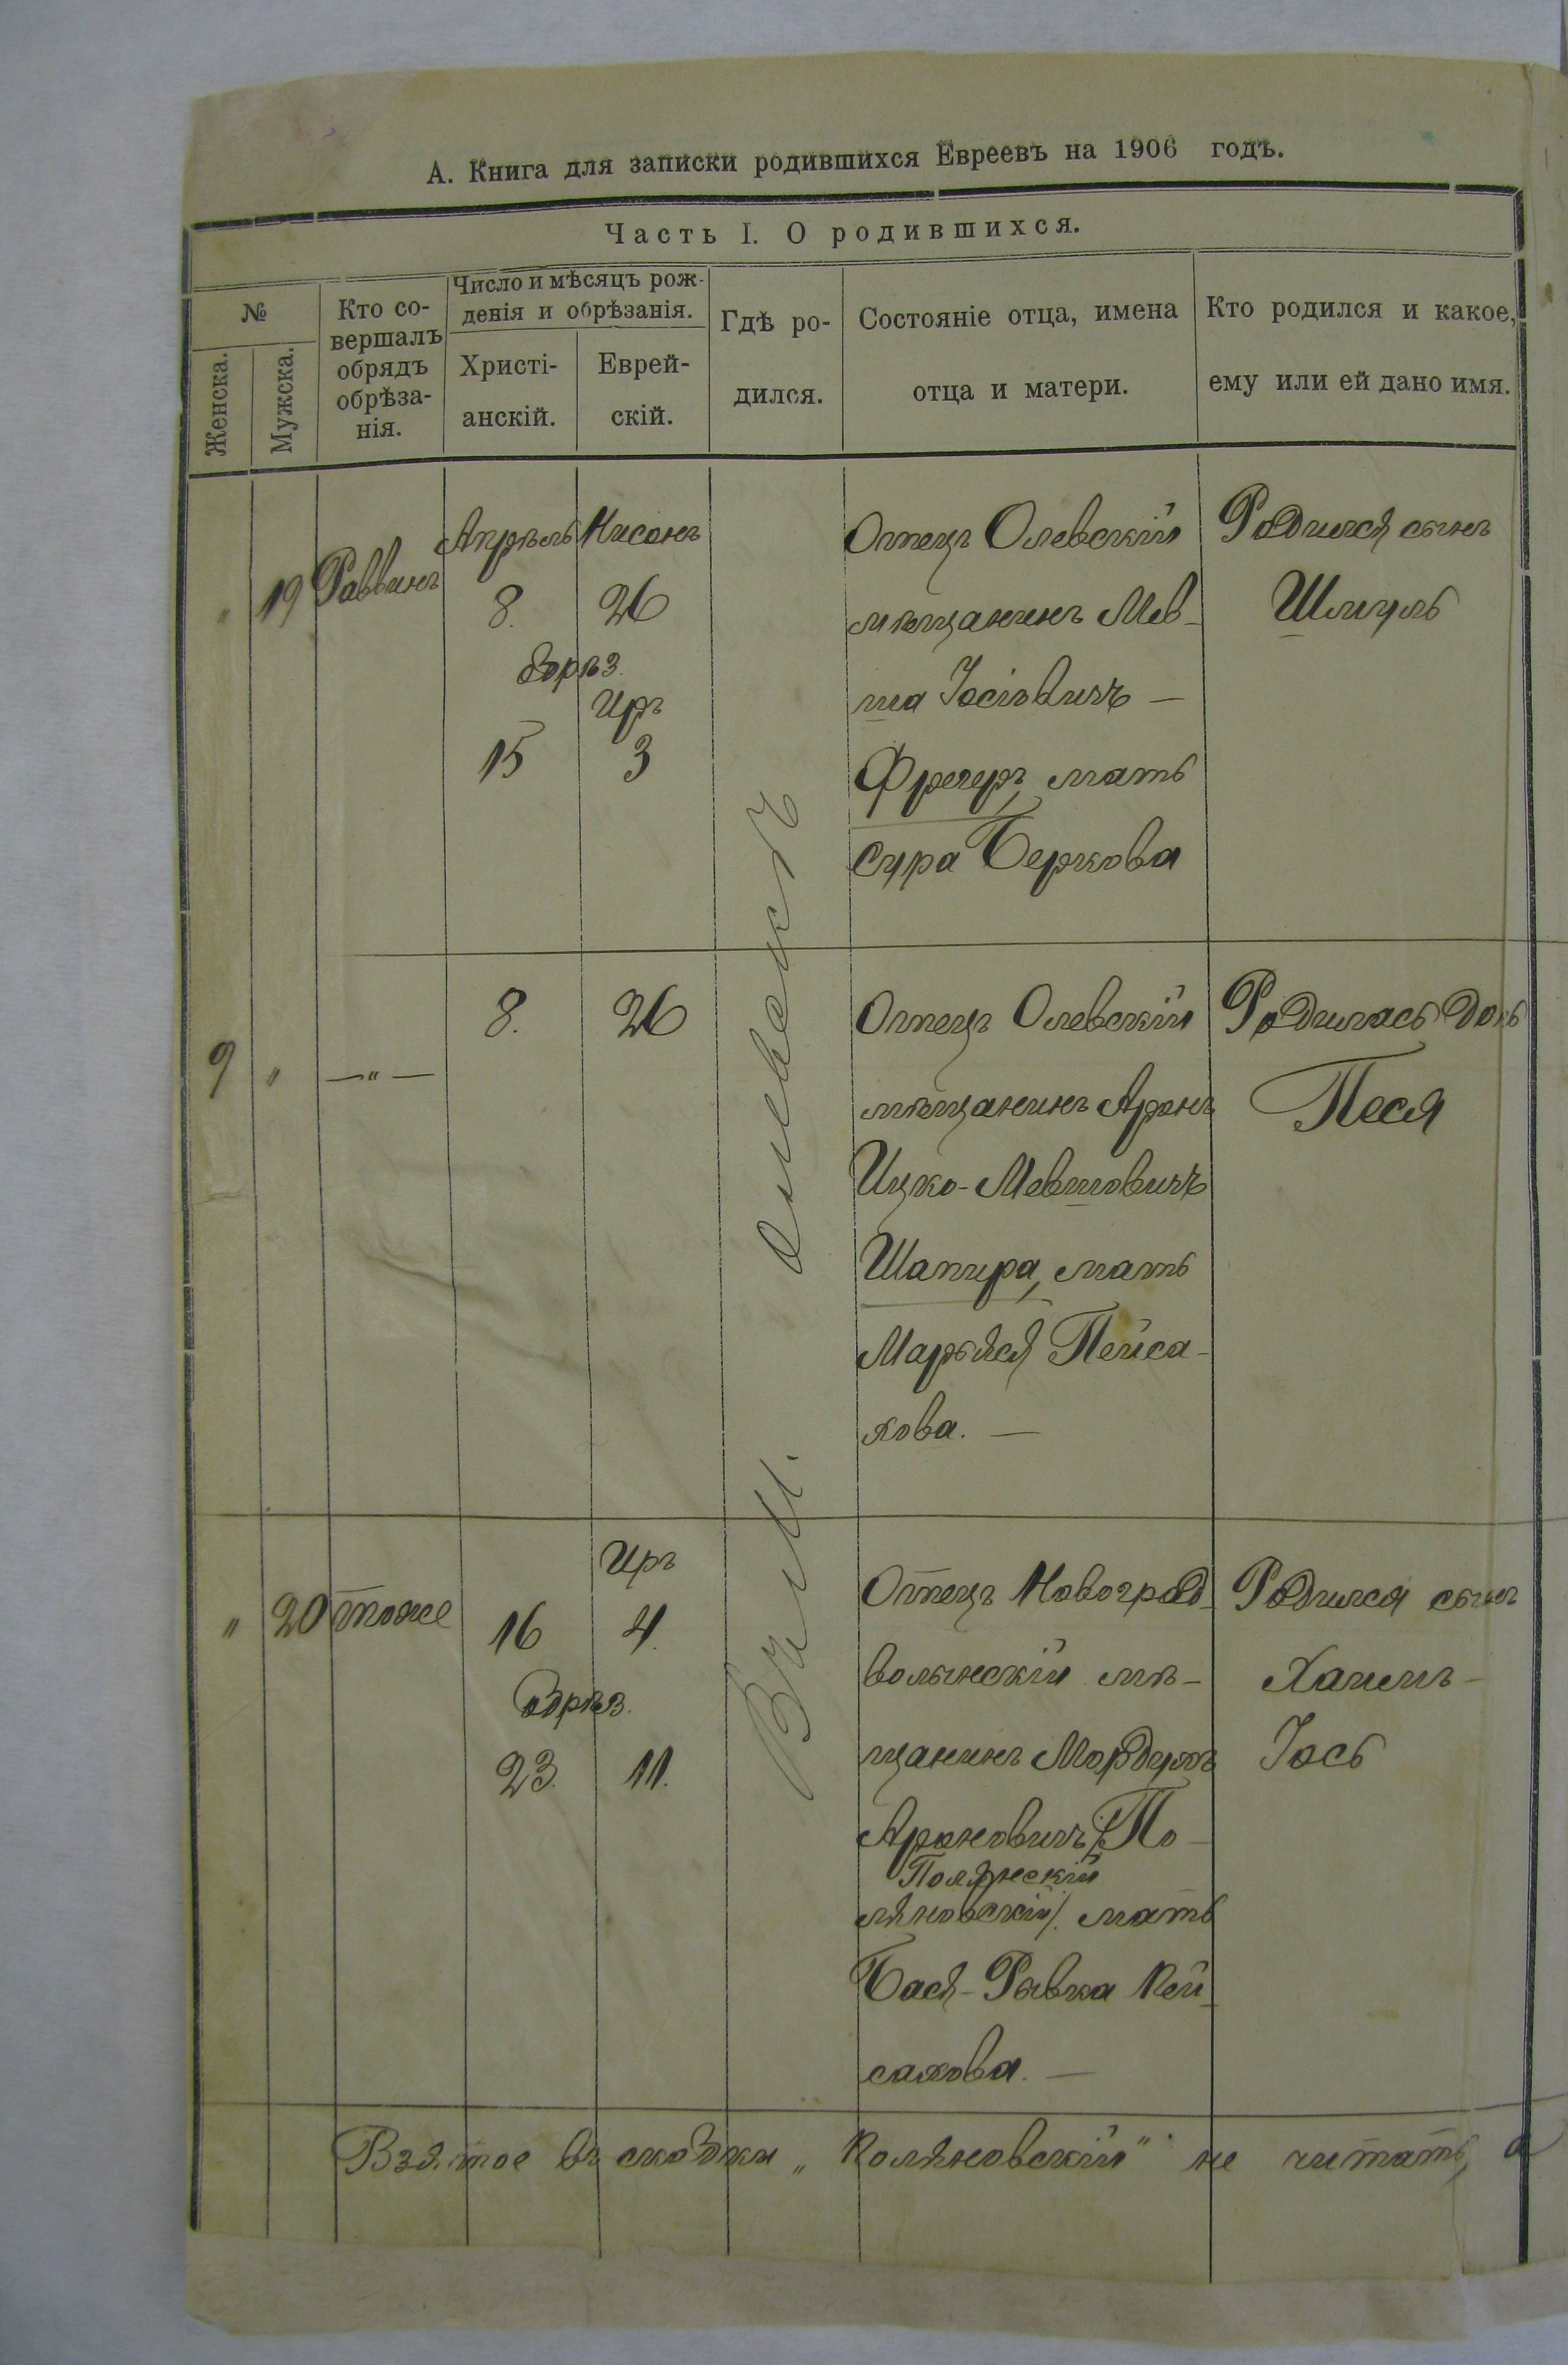 А. Книга для записки родившихся Евреевъ на 1906 годъ.
Часть I. О родившихся.
№
Женска.
Мужска.
Кто со-
вершалъ
обрядъ
обрѣза-
нія.
Число и мѣсяцъ рож-
денія и обрѣзанія.
Христі-
анскій.
Еврей-
скій.
Гдѣ ро-
дился.
Состояніе отца, имена
отца и матери.
Кто родился и какое,
ему или ей дано имя.
" 19 Раввинъ
Апрѣль Нисонъ
8. 26
Обрѣз.
Иръ
15 3
Отецъ Олевскій
мѣщанинъ Мев-
ша Іосіовичъ —
Фрегеръ, мать
Сура Беркова
Родился сынъ
Шмуль
въ м. Олевскъ
9 " —"—
8. 26
Отецъ Олевскій
мѣщанинъ Аронъ
Ицко-Мевшовичъ
Шапира, мать
Марьяся Пейса-
хова. —
Родилась дочь
Песя
" 20 тоже
Иръ
16 4.
Обрѣз.
23. 11.
Отецъ Новоград-
волынскій мѣ-
щанинъ Мордухъ
Ароновичъ /По-
Полянскій
ляновскій/. мать
Бася-Рывка Пей-
сахова. —
Родился сынъ
Хаимъ-
Іось
Взятое въ скобки „Поляновскій" не читать, а